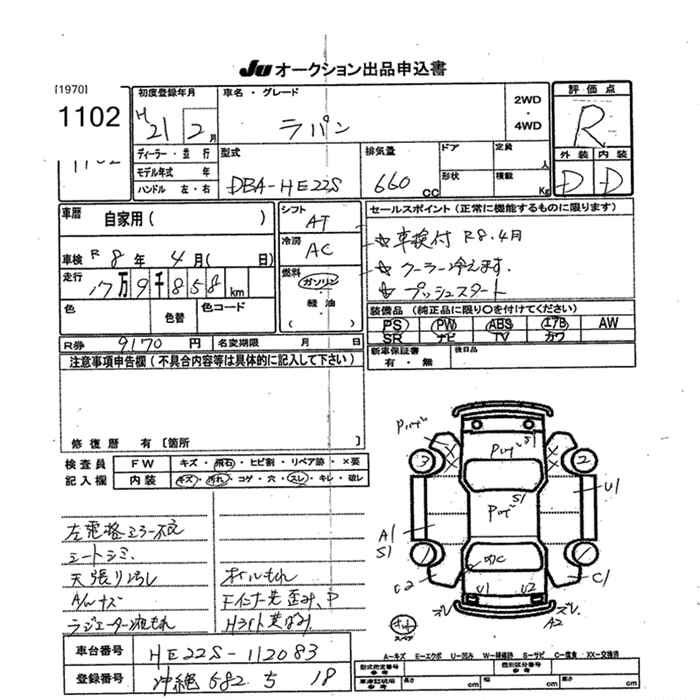 JU オークション出品申込書
[1970]
1102
初度登録年月
H 21 2 月
車名・グレード
ラパン
2WD
・
4WD
評価点
R
外装 内装
D D
ディーラー・並行
モデル年式 年
ハンドル 左・右
型式
DBA-HE22S
排気量
660 CC
ドア
形状
定員
人
積載
Kg
車歴 自家用( )
車検 R 8 年 4 月( 日)
走行 17万9千858 km
色 色替 色コード
シフト
AT
冷房
AC
燃料
ガソリン
・
軽油
( )
セールスポイント(正常に機能するものに限ります)
☆ 車検付 R8.4月
☆ クーラー冷えます.
☆ プッシュスタート
装備品(純正品に限り○を付けてください)
PS PW ABS エアB AW
SR ナビ TV カワ
R券 9170 円 名変期限 月 日
新車保証書
有・無
後日品
注意事項申告欄(不具合内容等は具体的に記入して下さい)
修復歴 有[箇所 ]
検査員
記入欄
FW キズ・飛石・ヒビ割・リペア跡・×要
内装 キズ・汚れ・コゲ・穴・スレ・キレ・破レ
左電格ミラー不良
シートシミ.
天張り汚し
A/Wキズ
ラジエーター液もれ
オイルもれ
Fインナー先歪み、P
Hライト黄ばみ
3
2
S1
S1
U1
A1
S1
C2
C1
U1
U2
A2
スペア
車台番号 HE22S-112083
登録番号 沖縄 582 ち 18
A-キズ E-エクボ U-凹み W-補修跡 S-サビ C-腐食 XX-交換済
型式指定番号
参考
類別区分番号
参考
車庫証明用
参考
長さ cm
幅 cm
高さ cm